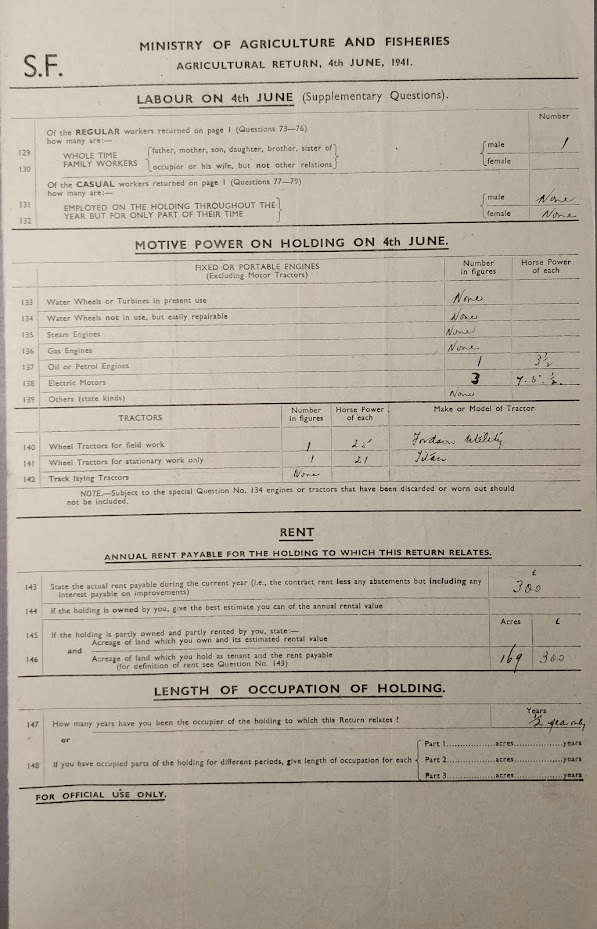 MINISTRY OF AGRICULTURE AND FISHERIES
S.F.
AGRICULTURAL RETURN, 4th JUNE, 1941.
LABOUR ON 4th JUNE (Supplementary Questions).
Number
Of the REGULAR workers returned on page 1 (Questions 73—76)
how many are:—
129 WHOLE TIME FAMILY WORKERS father, mother, son, daughter, brother, sister of male 1
130 occupier or his wife, but not other relations female
Of the CASUAL workers returned on page 1 (Questions 77—79)
how many are:—
131 EMPLOYED ON THE HOLDING THROUGHOUT THE male None
132 YEAR BUT FOR ONLY PART OF THEIR TIME female None
MOTIVE POWER ON HOLDING ON 4th JUNE.
FIXED OR PORTABLE ENGINES Number Horse Power
(Excluding Motor Tractors) in figures of each
133 Water Wheels or Turbines in present use None
134 Water Wheels not in use, but easily repairable None
135 Steam Engines None
136 Gas Engines None
137 Oil or Petrol Engines 1 3½
138 Electric Motors 3 7. 5. ½.
139 Others (state kinds) None
TRACTORS Number in figures Horse Power of each Make or Model of Tractor
140 Wheel Tractors for field work 1 25 Fordson Utility
141 Wheel Tractors for stationary work only 1 21 Titan
142 Track laying Tractors None
NOTE.—Subject to the special Question No. 134 engines or tractors that have been discarded or worn out should
not be included.
RENT
ANNUAL RENT PAYABLE FOR THE HOLDING TO WHICH THIS RETURN RELATES.
£
143 State the actual rent payable during the current year (i.e., the contract rent less any abatements but including any
interest payable on improvements) 300
144 If the holding is owned by you, give the best estimate you can of the annual rental value
Acres £
145 If the holding is partly owned and partly rented by you, state:—
Acreage of land which you own and its estimated rental value
and
146 Acreage of land which you hold as tenant and the rent payable 169 300
(for definition of rent see Question No. 143)
LENGTH OF OCCUPATION OF HOLDING.
Years
147 How many years have you been the occupier of the holding to which this Return relates? ½ year only
or
Part 1 acres years
148 If you have occupied parts of the holding for different periods, give length of occupation for each Part 2 acres years
Part 3 acres years
FOR OFFICIAL USE ONLY.